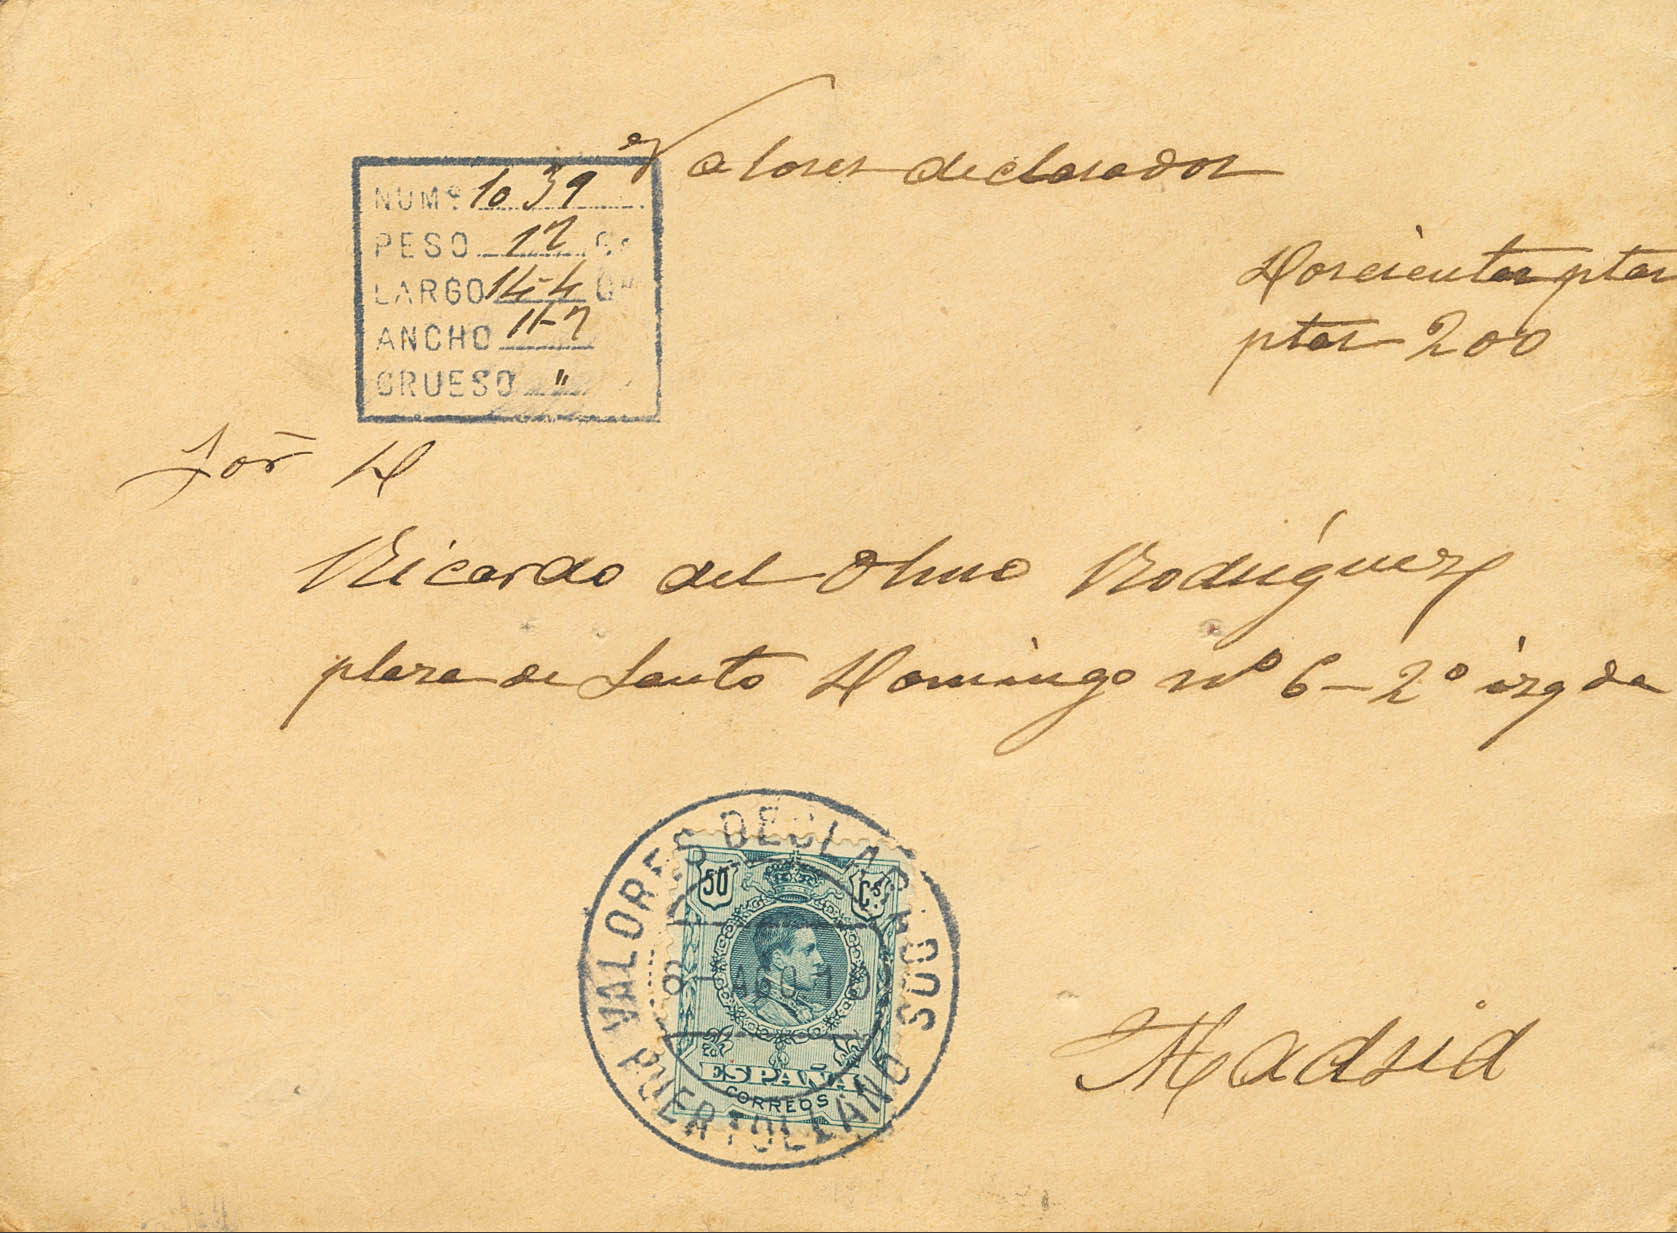 Valores declarados
NUMº 1039
PESO 17 Gs
LARGO 14-4 Cm
ANCHO 11-7
GRUESO "
Doscientas ptas
ptas 200
Sor D
Ricardo del Olmo Rodríguez
plaza de Santo Domingo nº 6-2º izqda
VALORES DECLARADOS
50 Cs.
8 AGO 10
ESPAÑA
CORREOS
PUERTOLLANO
Madrid